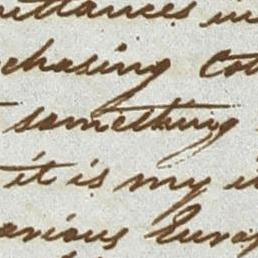 mittances in
chasing Cot
something
it is my i
arious Europ